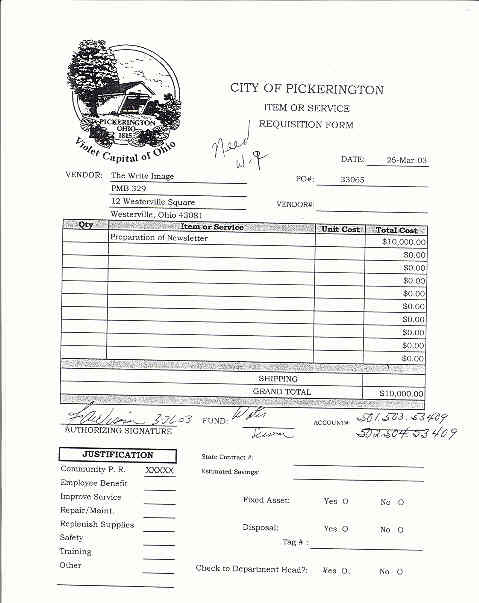 CITY OF PICKERINGTON
ITEM OR SERVICE
REQUISITION FORM
PICKERINGTON
OHIO
1815
Violet Capital of Ohio
Need
DATE: 26-Mar-03
VENDOR: The Write Image PO#: 33065
PMB 329
12 Westerville Square VENDOR#:
Westerville, Ohio 43081
Qty Item or Service Unit Cost Total Cost
Preparation of Newsletter $10,000.00
$0.00
$0.00
$0.00
$0.00
$0.00
$0.00
$0.00
$0.00
$0.00
SHIPPING
GRAND TOTAL $10,000.00
3-26-03 FUND: Water ACCOUNT# 501.503.53409
AUTHORIZING SIGNATURE 502.504.53409
JUSTIFICATION State Contract #:
Community P. R. XXXXX Estimated Savings:
Employee Benefit
Improve Service Fixed Asset: Yes O No O
Repair/Maint.
Replenish Supplies Disposal: Yes O No O
Safety Tag # :
Training
Other Check to Department Head?: Yes O No O